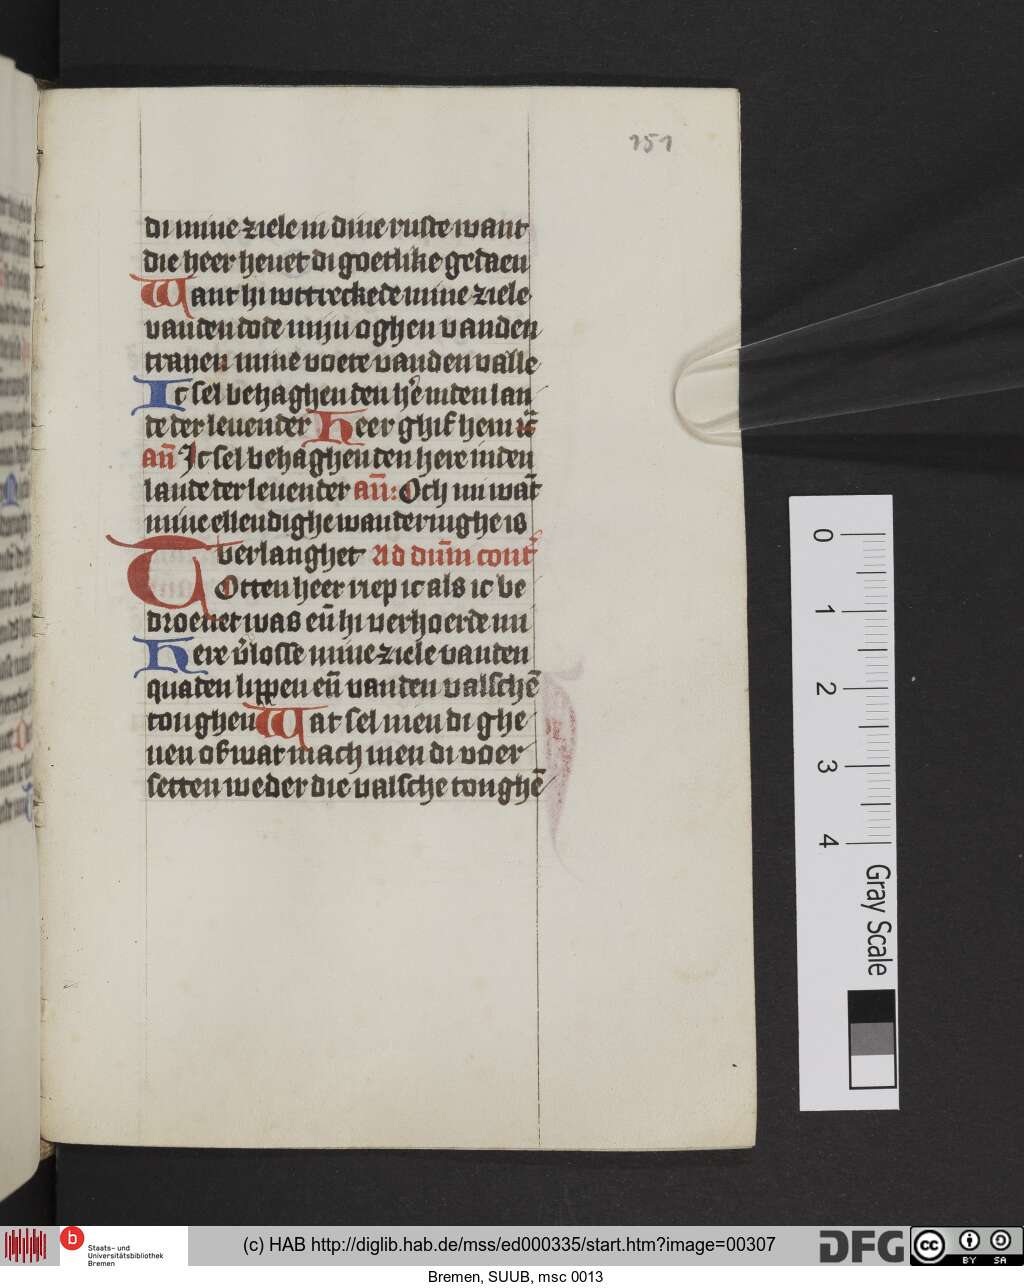 151
di mine ziele in dine ruste want
die heer heuet di goetlike gedaen
Want hi wttreckede mine ziele
vanden dode mijn oghen vanden
tranen mine voete vanden valle
Ic sel behaghen den hē inden lan
de der leuender Heer ghif hem ꝛē
añ Ic sel behaghen den here inden
lande der leuender añ: Och nu wāt
mine ellendighe wanderinghe is
verlanghet Ad dn̄m cont̄
TOtten heer riep ic als ic be
droeuet was eñ hi verhoerde mi
Here v̄losse mine ziele vanden
quaden lippen eñ vanden valschē
tonghen Wat sel men di ghe
uen of wat mach men di voer
setten weder die valsche tonghē
0
1
2
3
4
Gray Scale
b
Staats- und
Universitätsbibliothek
Bremen
(c) HAB http://diglib.hab.de/mss/ed000335/start.htm?image=00307
DFG
cc
BY SA
Bremen, SUUB, msc 0013